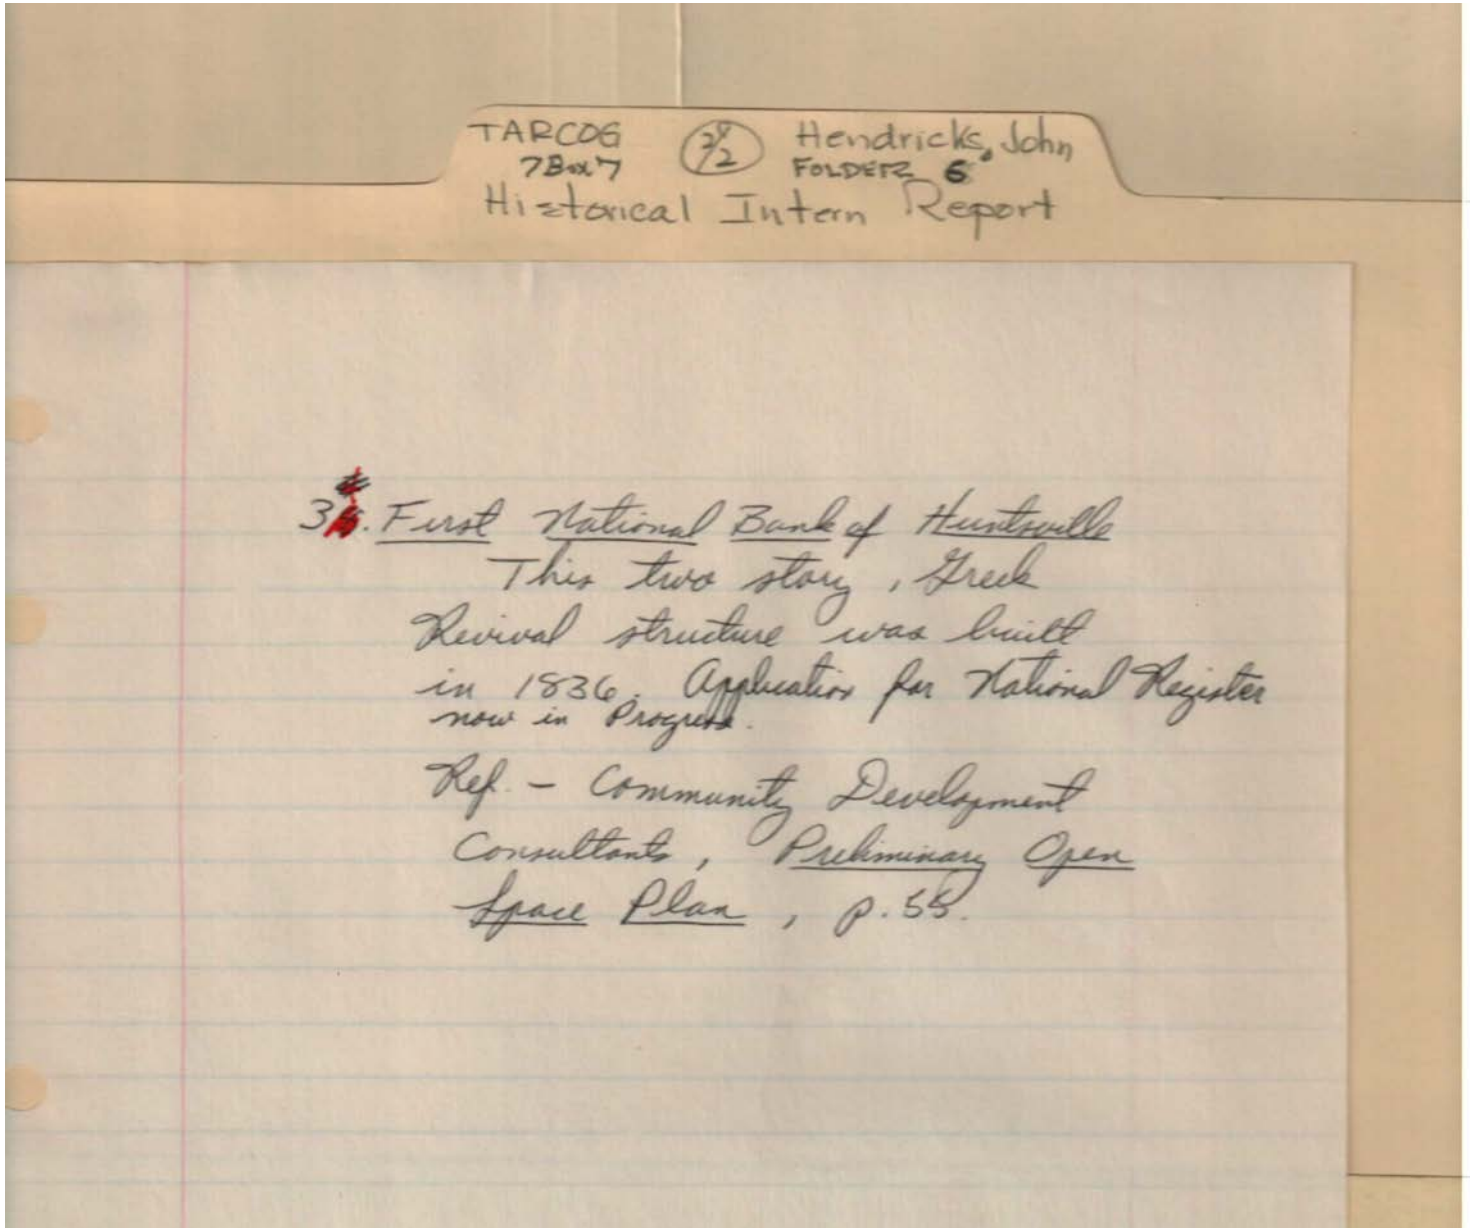 TARCOG 2/2 Hendricks, John
7Box7 FOLDER 6
Historical Intern Report
3. First National Bank of Huntsville
This two story, Greek
Revival structure was built
in 1836. Application for National Register
now in Progress.
Ref. - Community Development
Consultants, Preliminary Open
Space Plan, p. 55.